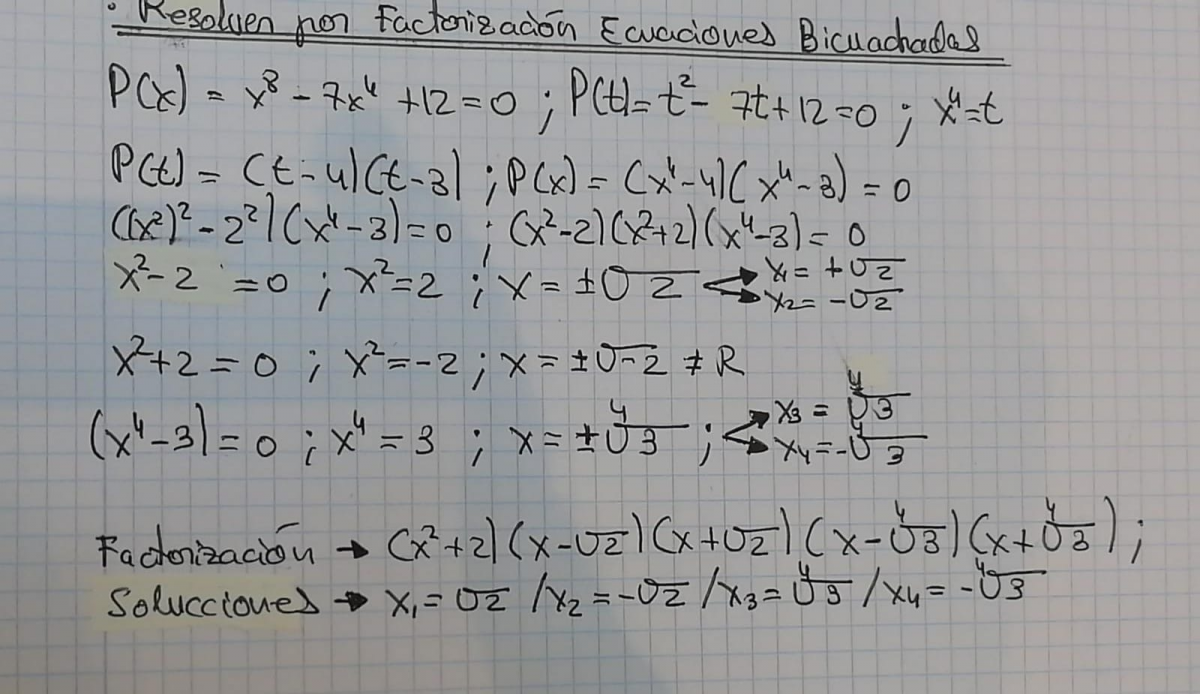 · Resolver por Factorización Ecuaciones Bicuachadas
P(x) = x⁸ - 7x⁴ + 12 = 0 ; P(t) = t² - 7t + 12 = 0 ; x⁴ = t
P(t) = (t - 4)(t - 3) ; P(x) = (x⁴ - 4)(x⁴ - 3) = 0
((x²)² - 2²)(x⁴ - 3) = 0 ; (x² - 2)(x² + 2)(x⁴ - 3) = 0
x² - 2 = 0 ; x² = 2 ; x = ±√2 x₁ = +√2
x₂ = -√2
x² + 2 = 0 ; x² = -2 ; x = ±√-2 ≠ R
(x⁴ - 3) = 0 ; x⁴ = 3 ; x = ±⁴√3 ; x₃ = ⁴√3
x₄ = -⁴√3
Factorización → (x² + 2)(x - √2)(x + √2)(x - ⁴√3)(x + ⁴√3) ;
Solucciones → x₁ = √2 / x₂ = -√2 / x₃ = ⁴√3 / x₄ = -⁴√3